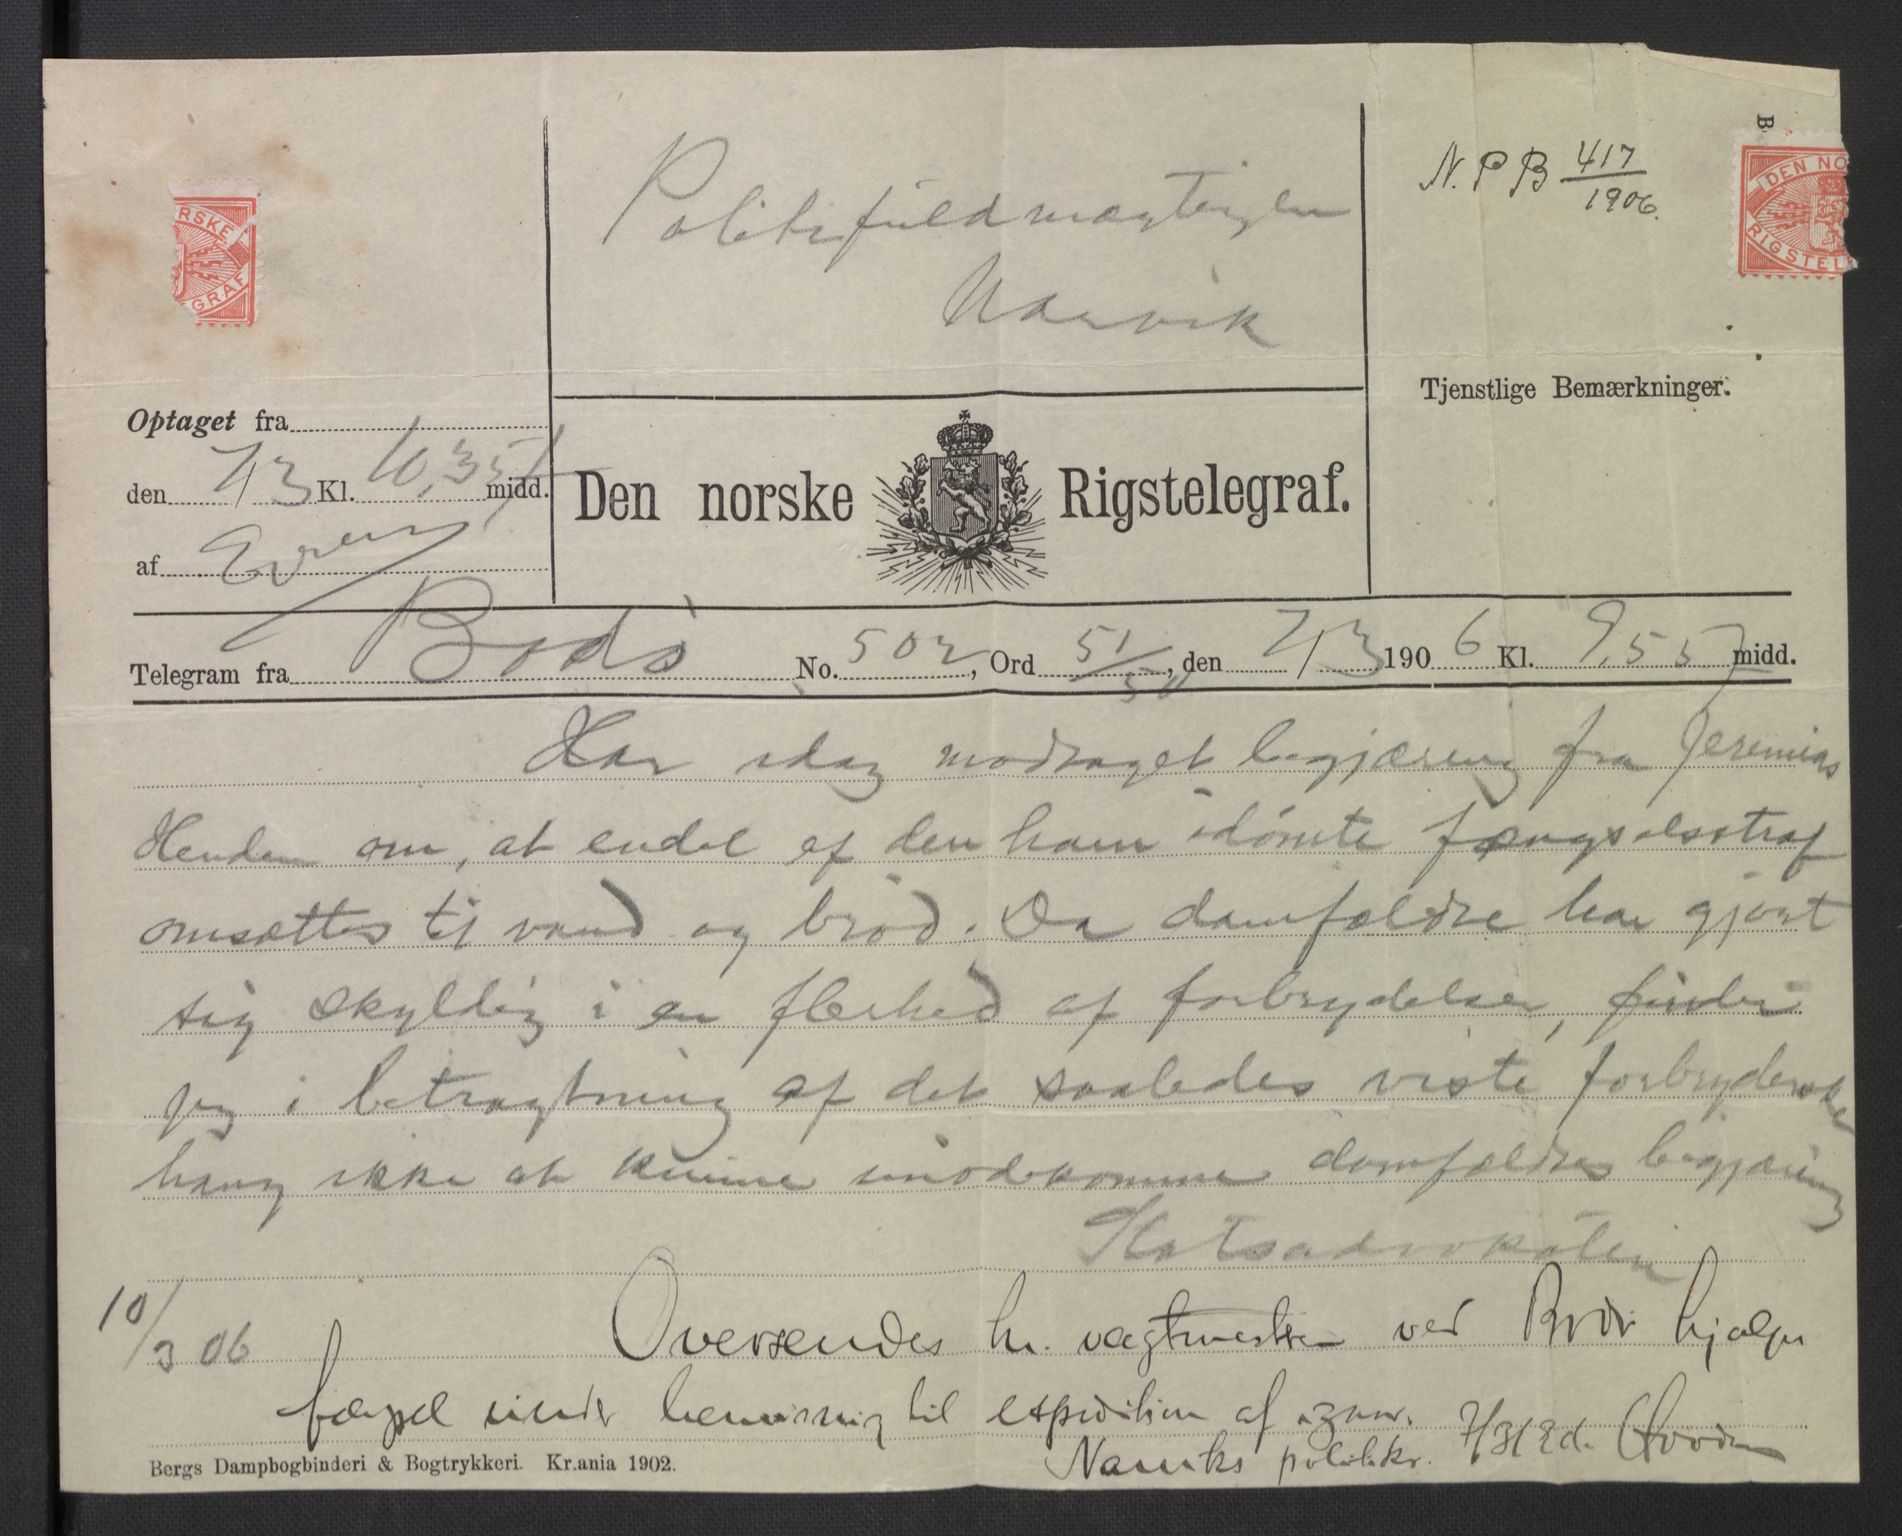 N. P B 417/1906.
B
DEN NO
RIGSTEL
RSKE
GRAF
Politifuldmægtigen
Narvik
Tjenstlige Bemærkninger.
Optaget fra
den 7/3 Kl. 10,35 f midd.
af
Den norske Rigstelegraf.
Telegram fra Bodö No. 502, Ord 51/50, den 7/3 1906 Kl. 9,55 f midd.
Har idag modtaget begjæring fra Jeremias
Henden om, at endel af den ham idömte fængselsstraf
omsættes til vand og bröd. Da domfældte har gjort
sig skyldig i en flerhed af forbrydelser, finder
jeg i betragtning af det saaledes viste forbryderske
hang ikke at kunne imödekomme domfældtes begjæring
Statsadvokaten
10/3 06
Oversendes hr. vagtmester ved Bodö hjælpe
fængsel under henvisning til expedition af
Narviks politik. 7/3
Bergs Dampbogbinderi & Bogtrykkeri. Kr.ania 1902.